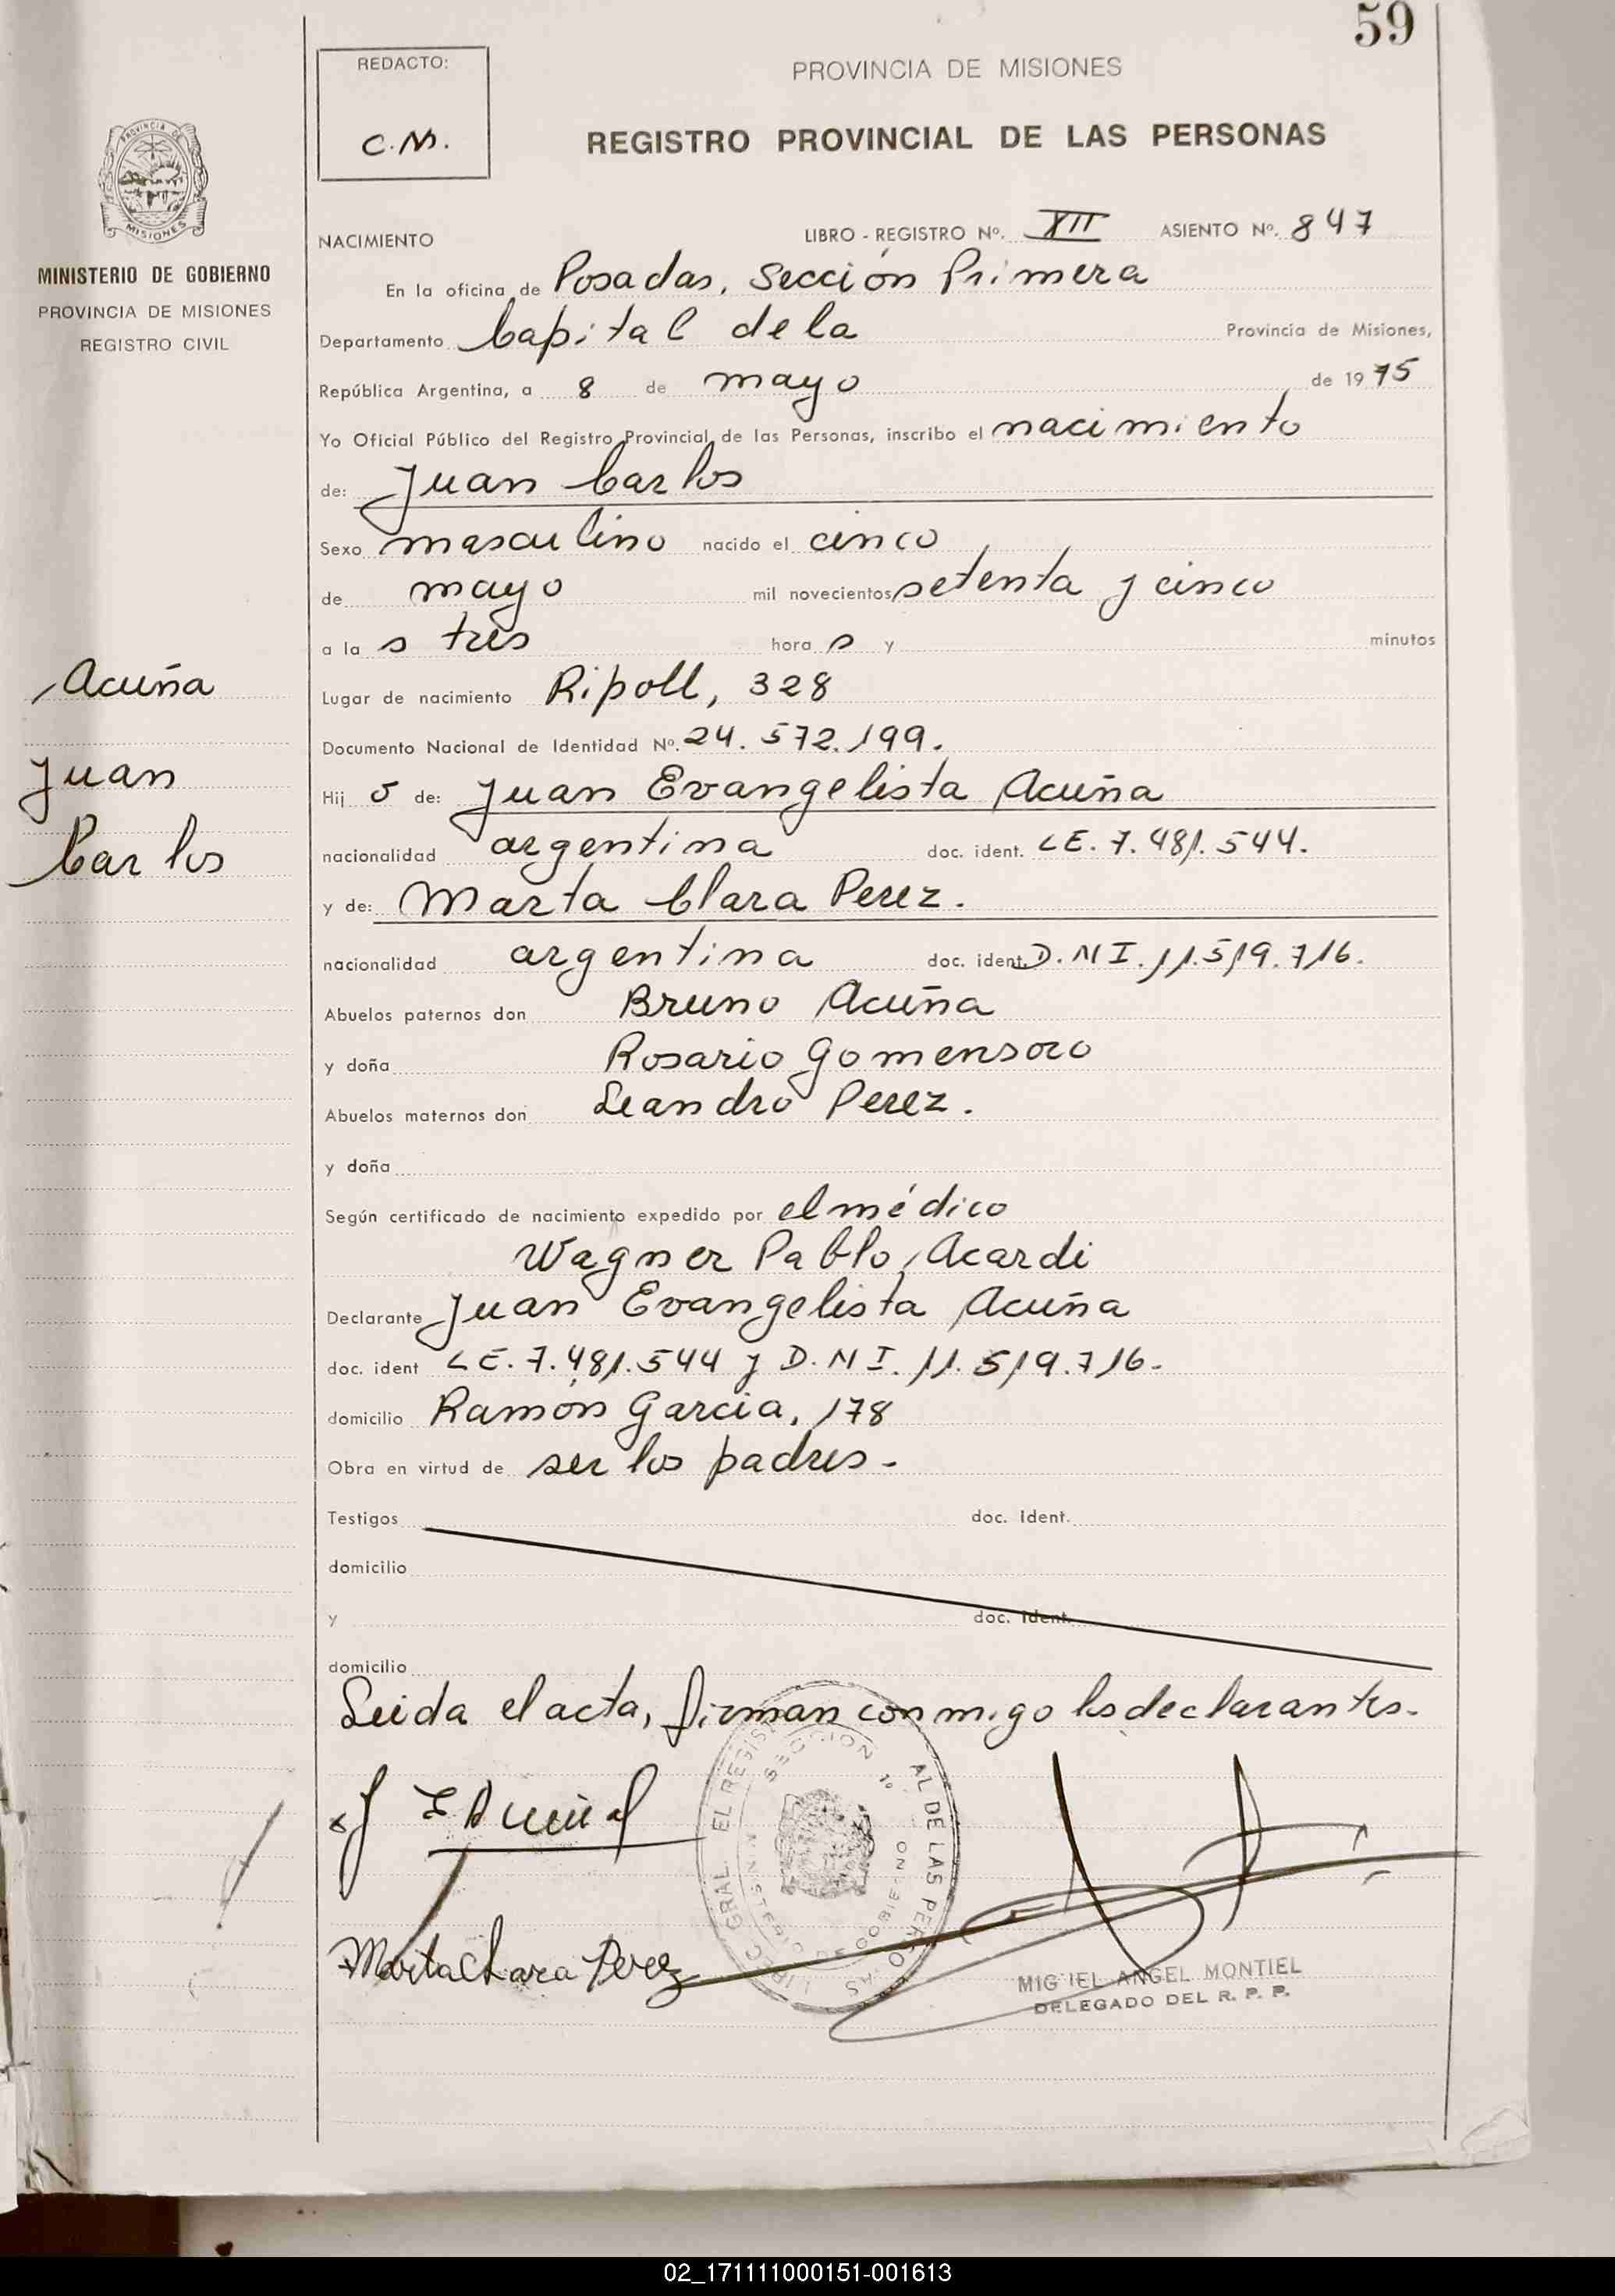 59
REDACTO:
C.M.
PROVINCIA DE MISIONES
REGISTRO PROVINCIAL DE LAS PERSONAS
PROVINCIA DE
MISIONES
MINISTERIO DE GOBIERNO
PROVINCIA DE MISIONES
REGISTRO CIVIL
NACIMIENTO LIBRO - REGISTRO Nº. XII ASIENTO Nº. 847
En la oficina de Posadas, Sección Primera
Departamento Capital de la Provincia de Misiones,
República Argentina, a 8 de mayo de 1975
Yo Oficial Público del Registro Provincial de las Personas, inscribo el nacimiento
de: Juan Carlos
Sexo masculino nacido el cinco
de mayo mil novecientos setenta y cinco
a la s tres hora s y minutos
Acuña
Juan
Carlos
Lugar de nacimiento Ripoll, 328
Documento Nacional de Identidad Nº. 24.572.199.
Hij o de: Juan Evangelista Acuña
nacionalidad argentina doc. ident. LE. 7.481.544.
y de: Marta Clara Perez.
nacionalidad argentina doc. ident. D.N I. 11.519.716.
Abuelos paternos don Bruno Acuña
y doña Rosario Gomensoro
Abuelos maternos don Leandro Perez.
y doña
Según certificado de nacimiento expedido por el médico
Wagner Pablo Acardi
Declarante Juan Evangelista Acuña
doc. ident LE. 7.481.544 y D.N I. 11.519.716-
domicilio Ramón Garcia, 178
Obra en virtud de ser los padres-
Testigos doc. Ident.
domicilio
y doc. Ident.
domicilio
Leida el acta, firman conmigo los declarantes.
J E Acuña
Marta Clara Perez
SECCION 1º
MIGUEL ANGEL MONTIEL
DELEGADO DEL R. P. P.
02_171111000151-001613